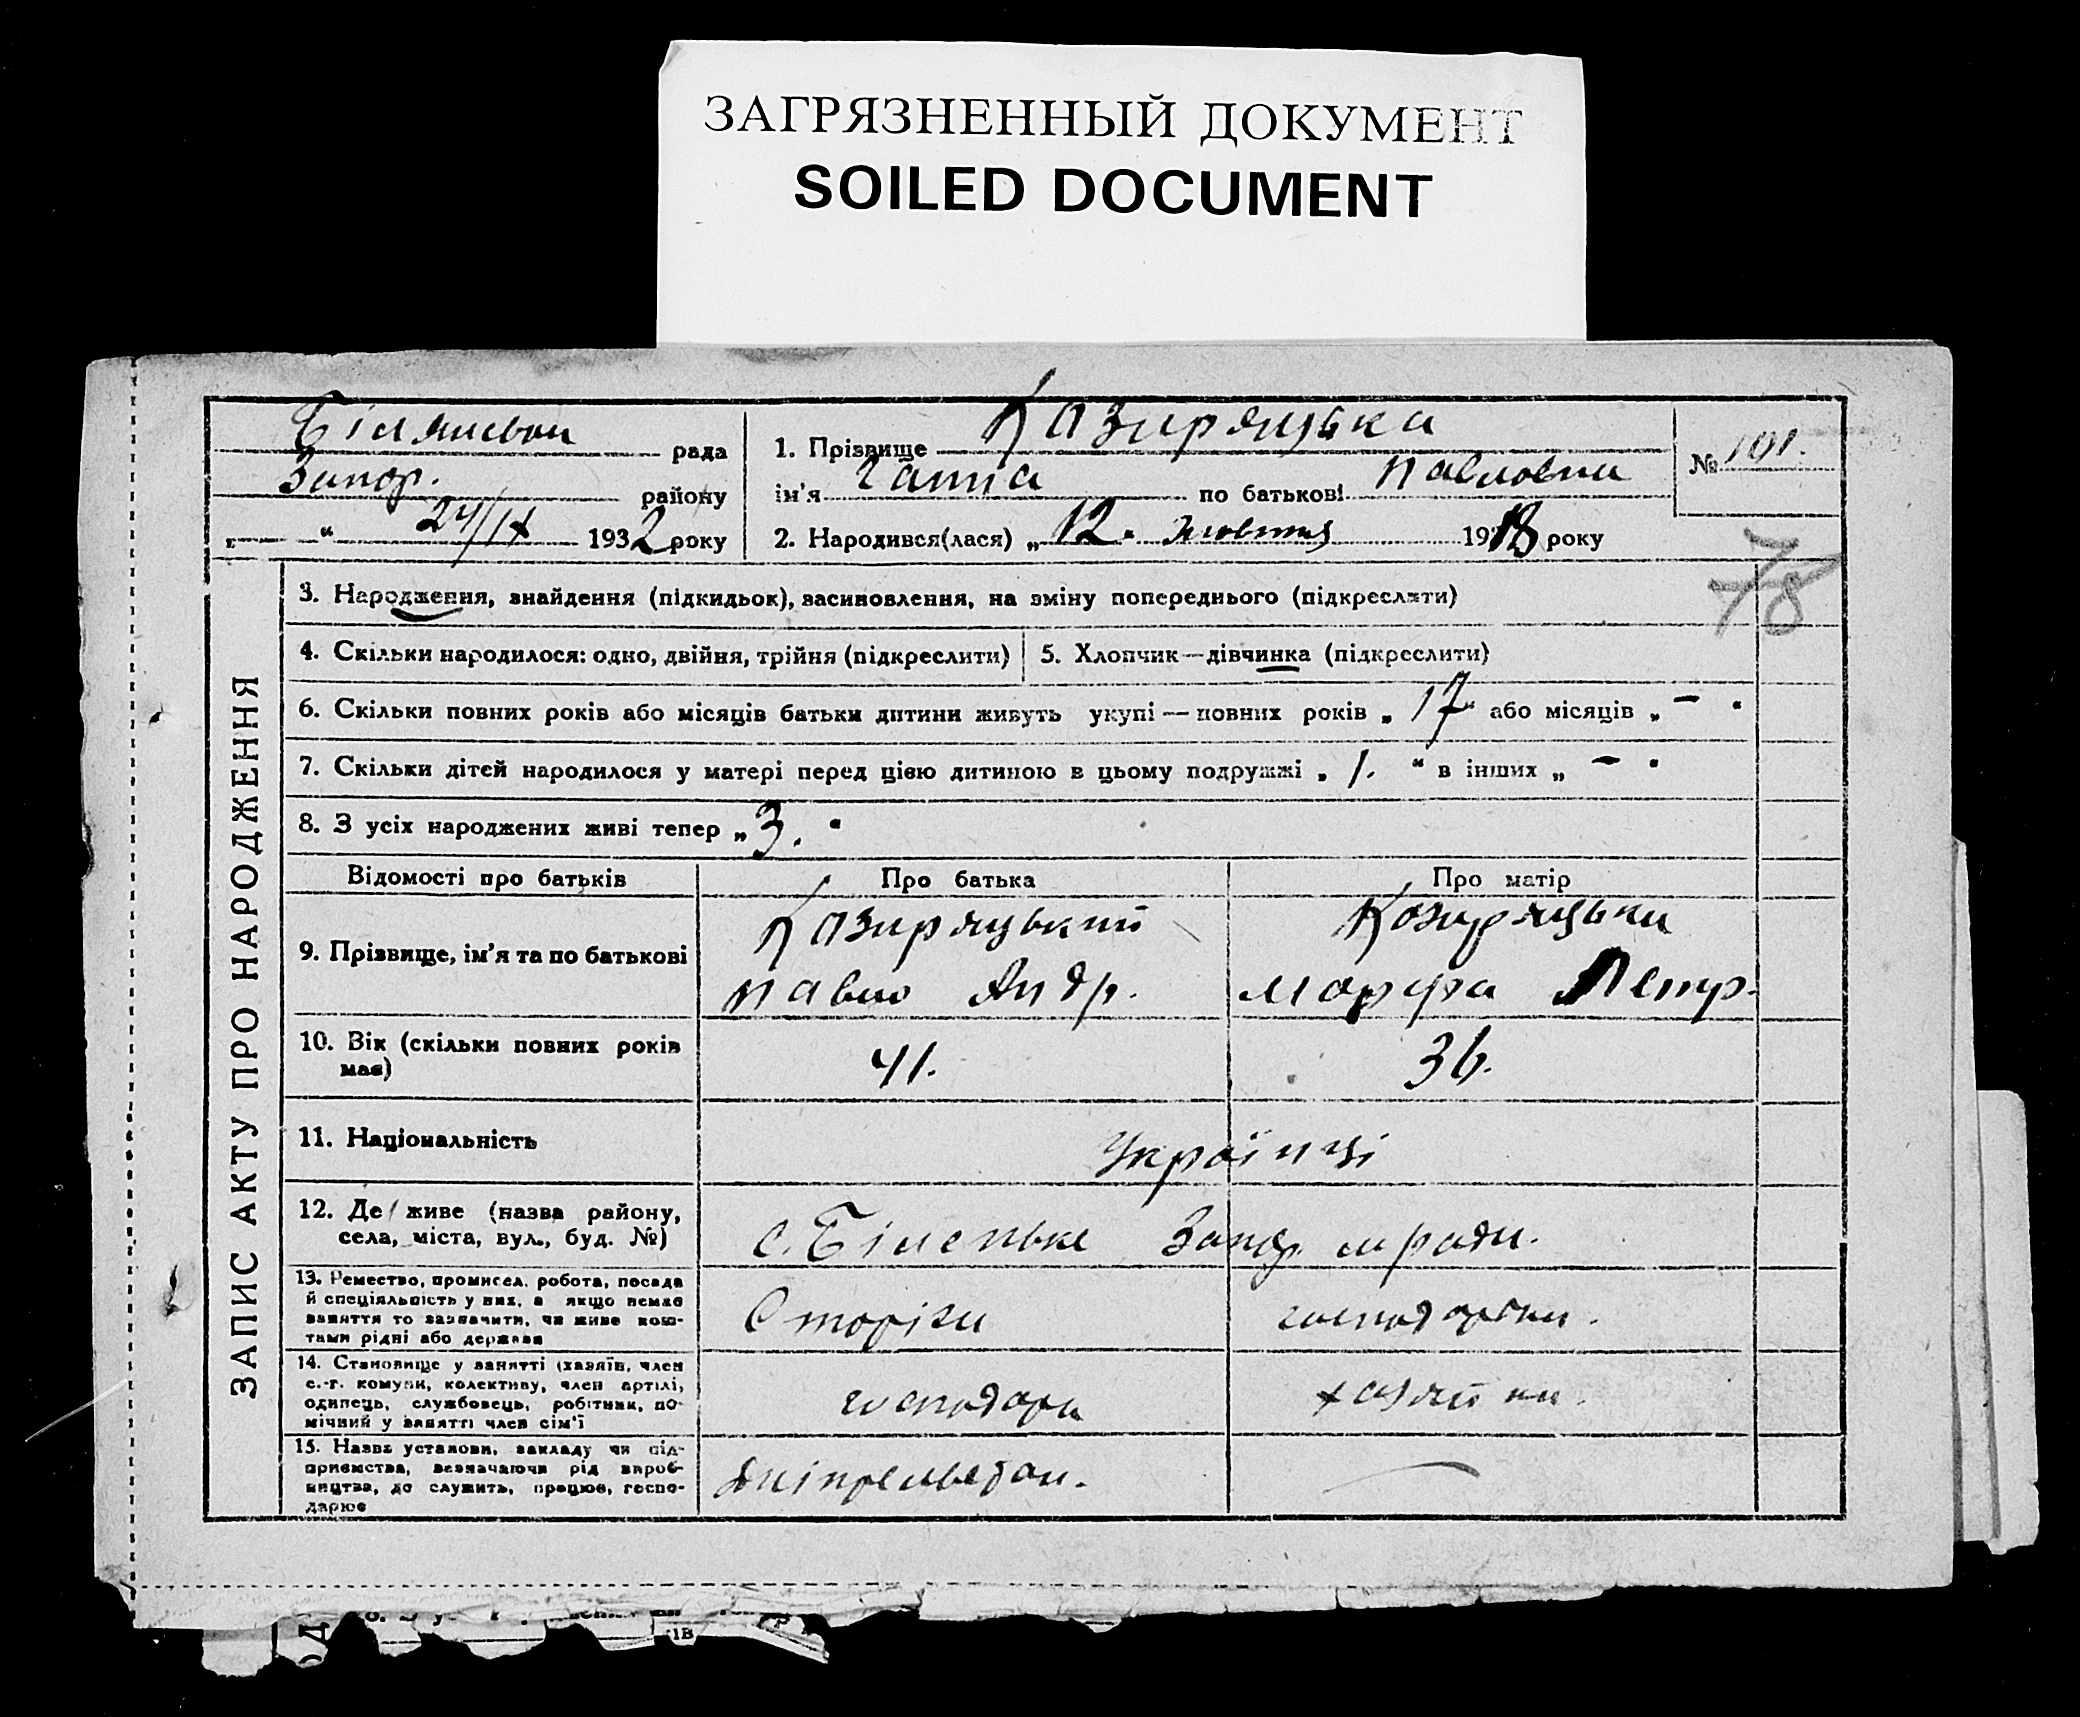 ЗАГРЯЗНЕННЫЙ ДОКУМЕНТ
SOILED DOCUMENT
рада
Запор. району
„ “ 24/IX 1932 року
1. Прізвище Казиряцька
ім'я Ганна по батькові Павловна
2. Народився(лася) „ 12. Жовтня 1918 року
№ 101.
78
ЗАПИС АКТУ ПРО НАРОДЖЕННЯ
3. Народження, знайдення (підкидьок), засиновлення, на зміну попереднього (підкреслити)
4. Скільки народилося: одно, двійня, трійня (підкреслити)
5. Хлопчик—дівчинка (підкреслити)
6. Скільки повних років або місяців батьки дитини живуть укупі — повних років „ 17 “ або місяців „ – “
7. Скільки дітей народилося у матері перед цією дитиною в цьому подружжі „ 1. “ в інших „ – “
8. З усіх народжених живі тепер „ 3. “
Відомості про батьків
Про батька
Про матір
9. Прізвище, ім'я та по батькові
Казиряцький
Павло Андр.
Козиряцька
Марфа Петр.
10. Вік (скільки повних років
має)
41.
36.
11. Національність
Українці
12. Де живе (назва району,
села, міста, вул., буд. №)
с. Біленьке Запор. м/ради.
13. Ремество, промисел, робота, посада
й спеціяльність у них, а якщо немає
заняття то зазначити, чи живе кош-
тами рідні або держави
Сторіж
господарка.
14. Становище у занятті (хазяїн, член
с.-г. комуни, колективу, член артілі,
одинець, службовець, робітник, по-
мічний у занятті член сім'ї
господар
хазяйка.
15. Назва установи, закладу чи під-
приємства, зазначаючи рід вироб-
ництва, де служить, працює, госпо-
дарює
—